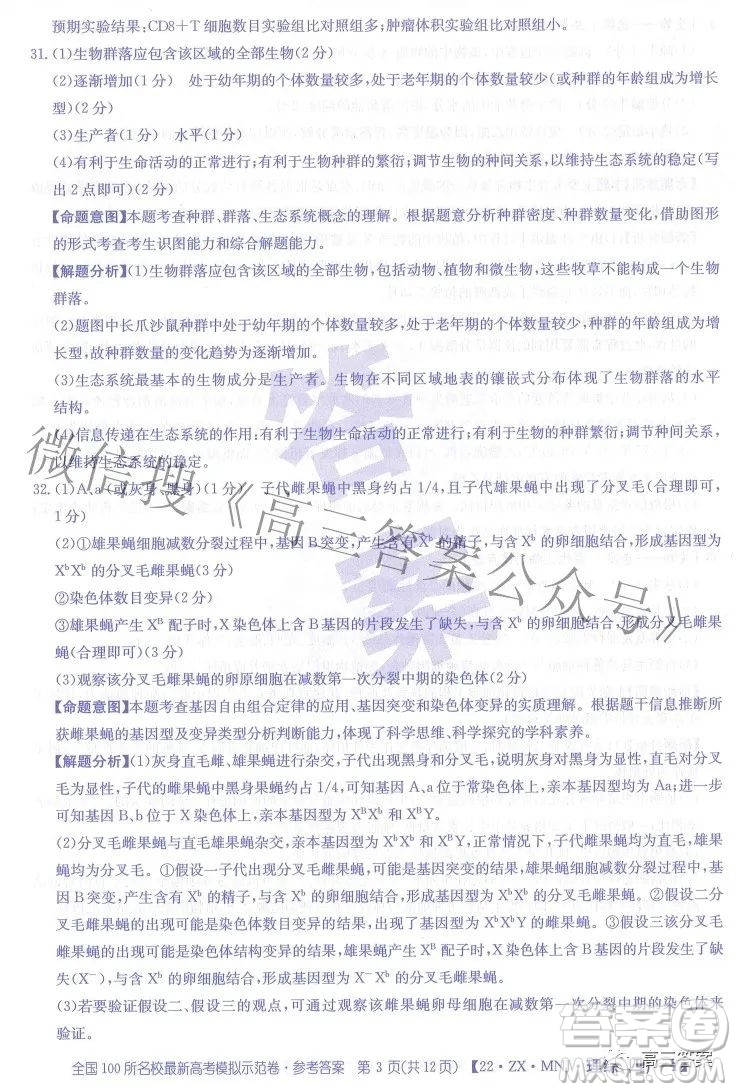 预期实验结果:CD8+T细胞数目实验组比对照组多;肿瘤体积实验组比对照组小。
31.(1)生物群落应包含该区域的全部生物(2分)
(2)逐渐增加(1分) 处于幼年期的个体数量较多,处于老年期的个体数量较少(或种群的年龄组成为增长
型)(2分)
(3)生产者(1分) 水平(1分)
(4)有利于生命活动的正常进行;有利于生物种群的繁衍;调节生物的种间关系,以维持生态系统的稳定(写
出2点即可)(2分)
【命题意图】本题考查种群、群落、生态系统概念的理解。根据题意分析种群密度、种群数量变化,借助图形
的形式考查考生识图能力和综合解题能力。
【解题分析】(1)生物群落应包含该区域的全部生物,包括动物、植物和微生物,这些牧草不能构成一个生物
群落。
(2)题图中长爪沙鼠种群中处于幼年期的个体数量较多,处于老年期的个体数量较少,种群的年龄组成为增
长型,故种群数量的变化趋势为逐渐增加。
(3)生态系统最基本的生物成分是生产者。生物在不同区域地表的镶嵌式分布体现了生物群落的水平
结构。
(4)信息传递在生态系统的作用:有利于生物生命活动的正常进行;有利于生物的种群繁衍;调节种间关系,
以维持生态系统的稳定。
32.(1)Aa(或灰身、黑身)(1分) 子代雌果蝇中黑身约占1/4,且子代雄果蝇中出现了分叉毛(合理即可,
1分)
(2)①雄果蝇细胞减数分裂过程中,B基因突变,产生含有Xᵇ的精子,与含Xᵇ的卵细胞结合,形成基因型为
XᵇXᵇ的分叉毛雌果蝇(3分)
②染色体数目变异(2分)
③雄果蝇产生Xᴮ配子时,X染色体上含B基因的片段发生了缺失,与含Xᵇ的卵细胞结合,形成分叉毛雌果
蝇(合理即可)(3分)
(3)观察该分叉毛雌果蝇的卵原细胞在减数第一次分裂中期的染色体(2分)
【命题意图】本题考查基因自由组合定律的应用、基因突变和染色体变异的实质理解。根据题干信息推断所
获雌果蝇的基因型及变异类型分析判断能力,体现了科学思维、科学探究的学科素养。
【解题分析】(1)灰身直毛雌、雄果蝇进行杂交,子代出现黑身和分叉毛,说明灰身对黑身为显性,直毛对分叉
毛为显性,子代的雌果蝇中黑身果蝇约占1/4,可知基因A、a位于常染色体上,亲本基因型均为Aa;进一步
可知基因B、b位于X染色体上,亲本基因型为XᴮXᵇ和XᴮY。
(2)分叉毛雌果蝇与直毛雄果蝇杂交,亲本基因型为XᵇXᵇ和XᴮY,正常情况下,子代雌果蝇均为直毛、雄果
蝇均为分叉毛。①假设一子代出现分叉毛雌果蝇,可能是基因突变的结果,雄果蝇细胞减数分裂过程中,基
因B突变,产生含有Xᵇ的精子,与含Xᵇ的卵细胞结合,形成基因型为XᵇXᵇ的分叉毛雌果蝇。②假设二分
叉毛雌果蝇的出现可能是染色体数目变异的结果,出现了基因型为XᵇXᵇY的分叉毛雌果蝇。③假设三该分
叉毛雌果蝇的出现可能是染色体结构变异的结果,雄果蝇产生Xᴮ配子时,X染色体上含B基因的片段发生了缺
失(X⁻),与含Xᵇ的卵细胞结合,形成分叉毛雌果蝇。
(3)若要验证假设二、假设三的观点,可通过观察该雌果蝇卵母细胞在减数第一次分裂中期的染色体来
验证。
全国100所名校最新高考模拟示范卷·参考答案 第3页(共12页) 【22·ZX·MN
高三答案
答案
微信搜《高三答案公众号》